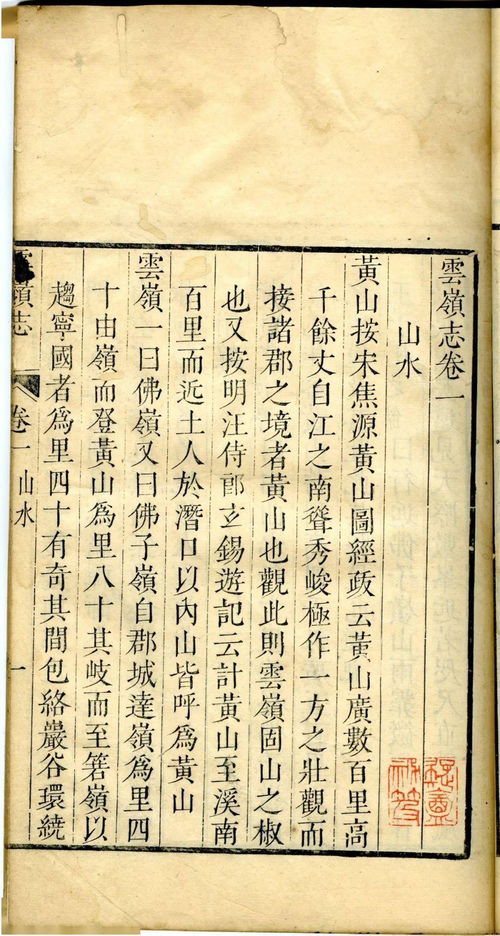 雲嶺志卷一
山水
黃山按宋焦源黃山圖經䟦云黃山廣數百里高
千餘丈自江之南聳秀峻極作一方之壯觀而
接諸郡之境者黃山也觀此則雲嶺固山之椒
也又按明汪侍郎玄錫遊記云計黃山至溪南
百里而近土人於潛口以內山皆呼為黃山
雲嶺一曰佛嶺又曰佛子嶺自郡城達嶺為里四
十由嶺而登黃山為里八十其岐而至箬嶺以
趨寧國者為里四十有奇其間包絡巖谷環繞
雲嶺志
卷一
山水
一